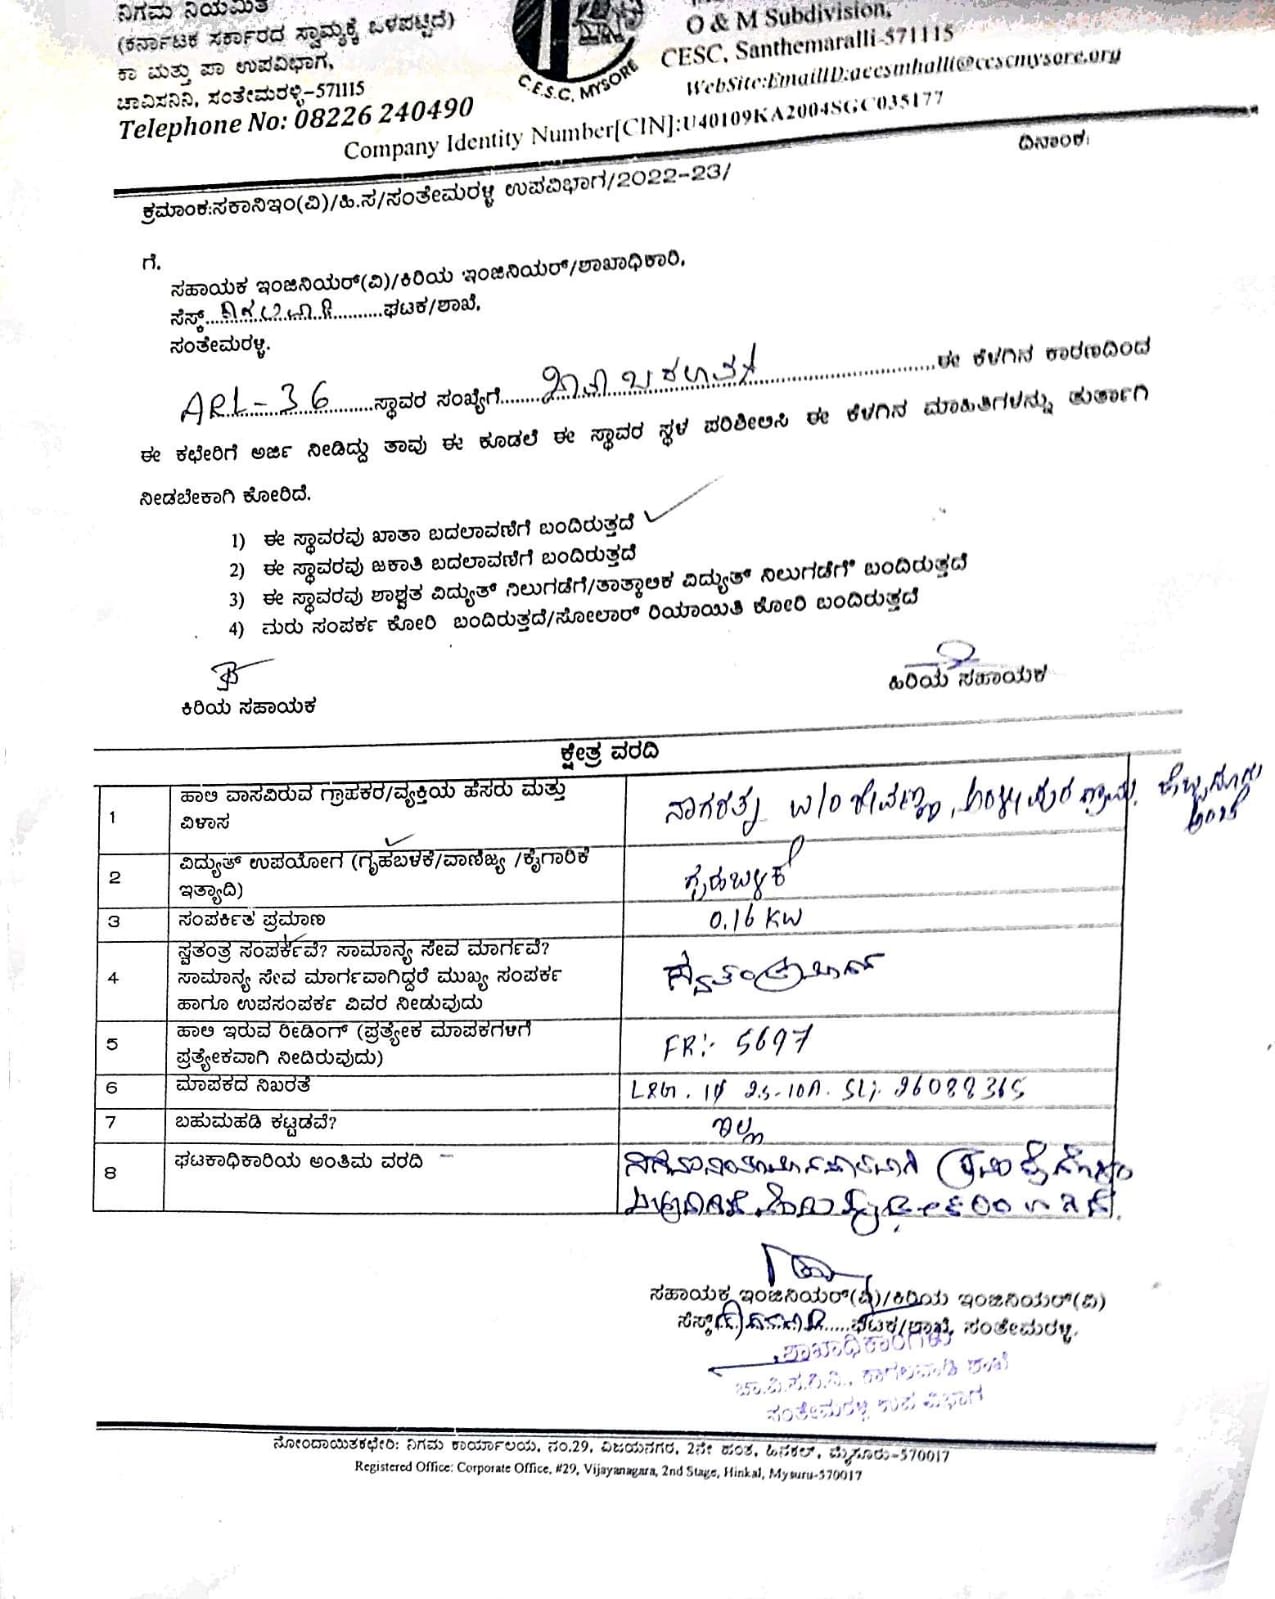 ನಿಗಮ ನಿಯಮಿತ
(ಕರ್ನಾಟಕ ಸರ್ಕಾರದ ಸ್ವಾಮ್ಯಕ್ಕೆ ಒಳಪಟ್ಟಿದೆ)
ಕಾ ಮತ್ತು ಪಾ ಉಪವಿಭಾಗ,
ಚಾವಿಸನಿನಿ, ಸಂತೇಮರಳ್ಳಿ-571115
Telephone No: 08226 240490
C.E.S.C, MYSORE
O & M Subdivision,
CESC, Santhemaralli-571115
WebSite:EmailID:aeesmhalli@cescmysore.org
Company Identity Number[CIN]:U40109KA2004SGC035177
ದಿನಾಂಕ:
ಕ್ರಮಾಂಕ:ಸಕಾನಿಇಂ(ವಿ)/ಹಿ.ಸ/ಸಂತೇಮರಳ್ಳಿ ಉಪವಿಭಾಗ/2022-23/
ಗೆ.
ಸಹಾಯಕ ಇಂಜಿನಿಯರ್(ವಿ)/ಕಿರಿಯ ಇಂಜಿನಿಯರ್/ಶಾಖಾಧಿಕಾರಿ,
ಸೆಸ್ಕ್ ಘಟಕ/ಶಾಖೆ,
ಸಂತೇಮರಳ್ಳಿ.
ARL-36 ಸ್ಥಾವರ ಸಂಖ್ಯೆಗೆ ಈ ಕೆಳಗಿನ ಕಾರಣದಿಂದ
ಈ ಕಛೇರಿಗೆ ಅರ್ಜಿ ನೀಡಿದ್ದು ತಾವು ಈ ಕೂಡಲೆ ಈ ಸ್ಥಾವರ ಸ್ಥಳ ಪರಿಶೀಲಿಸಿ ಈ ಕೆಳಗಿನ ಮಾಹಿತಿಗಳನ್ನು ತುರ್ತಾಗಿ
ನೀಡಬೇಕಾಗಿ ಕೋರಿದೆ.
1) ಈ ಸ್ಥಾವರವು ಖಾತಾ ಬದಲಾವಣೆಗೆ ಬಂದಿರುತ್ತದೆ
2) ಈ ಸ್ಥಾವರವು ಜಕಾತಿ ಬದಲಾವಣೆಗೆ ಬಂದಿರುತ್ತದೆ
3) ಈ ಸ್ಥಾವರವು ಶಾಶ್ವತ ವಿದ್ಯುತ್ ನಿಲುಗಡೆಗೆ/ತಾತ್ಕಾಲಿಕ ವಿದ್ಯುತ್ ನಿಲುಗಡೆಗೆ ಬಂದಿರುತ್ತದೆ
4) ಮರು ಸಂಪರ್ಕ ಕೋರಿ ಬಂದಿರುತ್ತದೆ/ಸೋಲಾರ್ ರಿಯಾಯಿತಿ ಕೋರಿ ಬಂದಿರುತ್ತದೆ
ಕಿರಿಯ ಸಹಾಯಕ
ಹಿರಿಯ ಸಹಾಯಕ
ಕ್ಷೇತ್ರ ವರದಿ
1 ಹಾಲಿ ವಾಸವಿರುವ ಗ್ರಾಹಕರ/ವ್ಯಕ್ತಿಯ ಹೆಸರು ಮತ್ತು
ವಿಳಾಸ
ನಾಗರತ್ನ W/O
2 ವಿದ್ಯುತ್ ಉಪಯೋಗ (ಗೃಹಬಳಕೆ/ವಾಣಿಜ್ಯ /ಕೈಗಾರಿಕೆ
ಇತ್ಯಾದಿ)
ಗೃಹಬಳಕೆ
3 ಸಂಪರ್ಕಿತ ಪ್ರಮಾಣ
0.16 KW
4 ಸ್ವತಂತ್ರ ಸಂಪರ್ಕವೆ? ಸಾಮಾನ್ಯ ಸೇವ ಮಾರ್ಗವೆ?
ಸಾಮಾನ್ಯ ಸೇವ ಮಾರ್ಗವಾಗಿದ್ದರೆ ಮುಖ್ಯ ಸಂಪರ್ಕ
ಹಾಗೂ ಉಪಸಂಪರ್ಕ ವಿವರ ನೀಡುವುದು
5 ಹಾಲಿ ಇರುವ ರೀಡಿಂಗ್ (ಪ್ರತ್ಯೇಕ ಮಾಪಕಗಳಿಗೆ
ಪ್ರತ್ಯೇಕವಾಗಿ ನೀಡಿರುವುದು)
FR:- 5697
6 ಮಾಪಕದ ನಿಖರತೆ
L&G. 1φ 2.5-10A. SL:
7 ಬಹುಮಹಡಿ ಕಟ್ಟಡವೆ?
ಇಲ್ಲ
8 ಘಟಕಾಧಿಕಾರಿಯ ಅಂತಿಮ ವರದಿ
ಸಹಾಯಕ ಇಂಜಿನಿಯರ್(ವಿ)/ಕಿರಿಯ ಇಂಜಿನಿಯರ್(ವಿ)
ಸೆಸ್ಕ್ ಘಟಕ/ಶಾಖೆ, ಸಂತೇಮರಳ್ಳಿ.
ಶಾಖಾಧಿಕಾರಿಗಳು
ಚಾ.ವಿ.ಸ.ನಿ.ನಿ., ಕಾಗಲವಾಡಿ ಶಾಖೆ
ಸಂತೇಮರಳ್ಳಿ ಉಪ ವಿಭಾಗ
ನೋಂದಾಯಿತಕಛೇರಿ: ನಿಗಮ ಕಾರ್ಯಾಲಯ, ನಂ.29, ವಿಜಯನಗರ, 2ನೇ ಹಂತ, ಹಿನಕಲ್, ಮೈಸೂರು-570017
Registered Office: Corporate Office, #29, Vijayanagara, 2nd Stage, Hinkal, Mysuru-570017